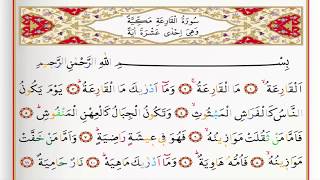 سُورَةُ الْقَارِعَةِ مَكِّيَّةٌ
وَهِيَ اِحْدٰى عَشْرَةَ اٰيَةً
بِسْمِ اللّٰهِ الرَّحْمٰنِ الرَّحِيمِ
اَلْقَارِعَةُ ۙ ﴿١﴾ مَا الْقَارِعَةُ ۚ ﴿٢﴾ وَمَٓا اَدْرٰيكَ مَا الْقَارِعَةُ ۜ ﴿٣﴾ يَوْمَ يَكُونُ
النَّاسُ كَالْفَرَاشِ الْمَبْثُوثِ ۙ ﴿٤﴾ وَتَكُونُ الْجِبَالُ كَالْعِهْنِ الْمَنْفُوشِ ۜ ﴿٥﴾
فَاَمَّا مَنْ ثَقُلَتْ مَوَازِينُهُ ۙ ﴿٦﴾ فَهُوَ فِي عِيشَةٍ رَاضِيَةٍ ۜ ﴿٧﴾ وَاَمَّا مَنْ خَفَّتْ
مَوَازِينُهُ ۙ ﴿٨﴾ فَاُمُّهُ هَاوِيَةٌ ۜ ﴿٩﴾ وَمَٓا اَدْرٰيكَ مَاهِيَهْ ۜ ﴿١٠﴾ نَارٌ حَامِيَةٌ ﴿١١﴾